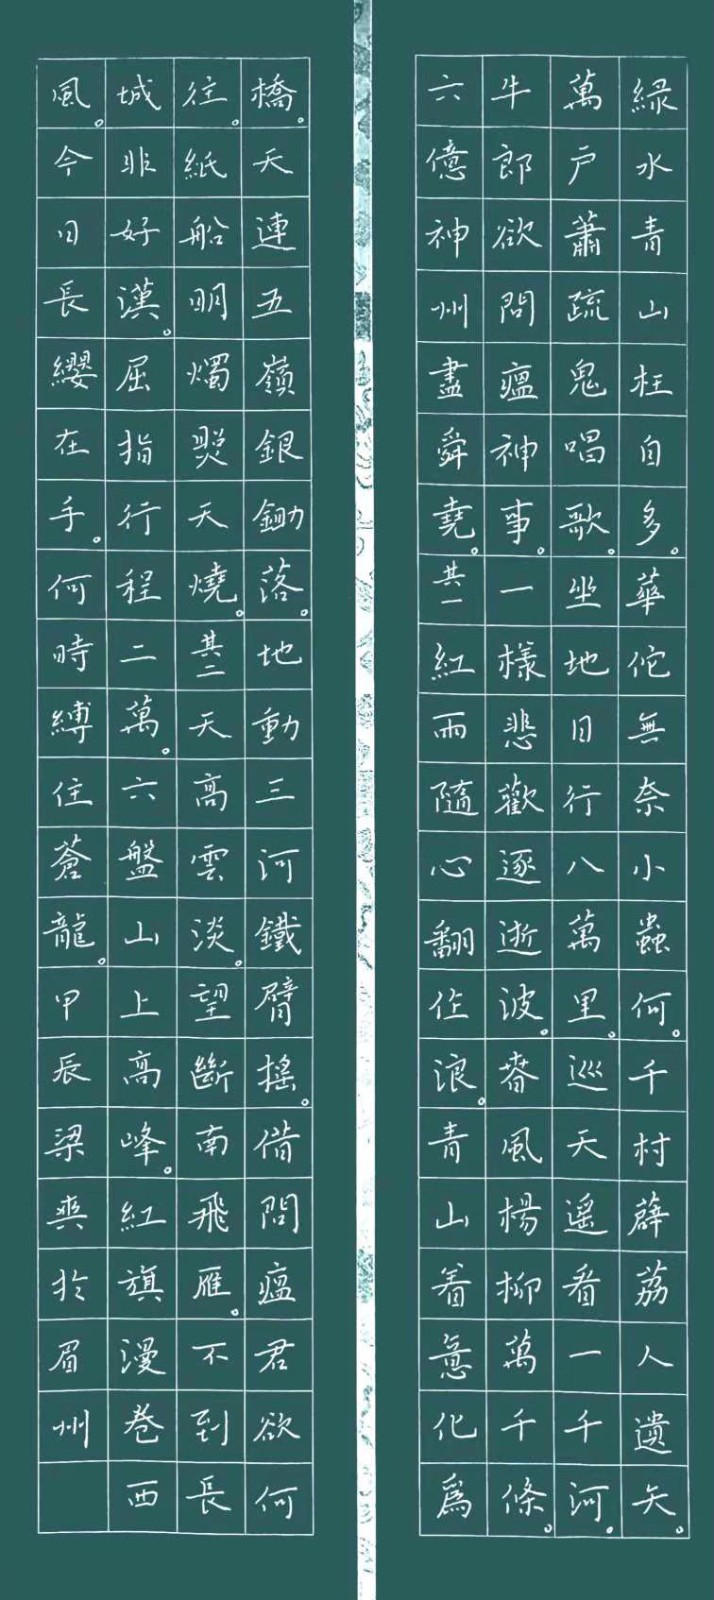 緑水青山枉自多。華佗無奈小蟲何。千村薜荔人遺矢。
萬户蕭疏鬼唱歌。坐地日行八萬里。巡天遥看一千河。
牛郎欲問瘟神事。一樣悲歡逐逝波。春風楊柳萬千條。
六億神州盡舜堯。其一紅雨隨心翻作浪。青山着意化爲
橋。天連五嶺銀鋤落。地動三河鐵臂摇。借問瘟君欲何
往。紙船明燭照天燒。其二天高雲淡。望斷南飛雁。不到長
城非好漢。屈指行程二萬。六盤山上高峰。紅旗漫卷西
風。今日長纓在手。何時縛住蒼龍。甲辰梁爽於眉州